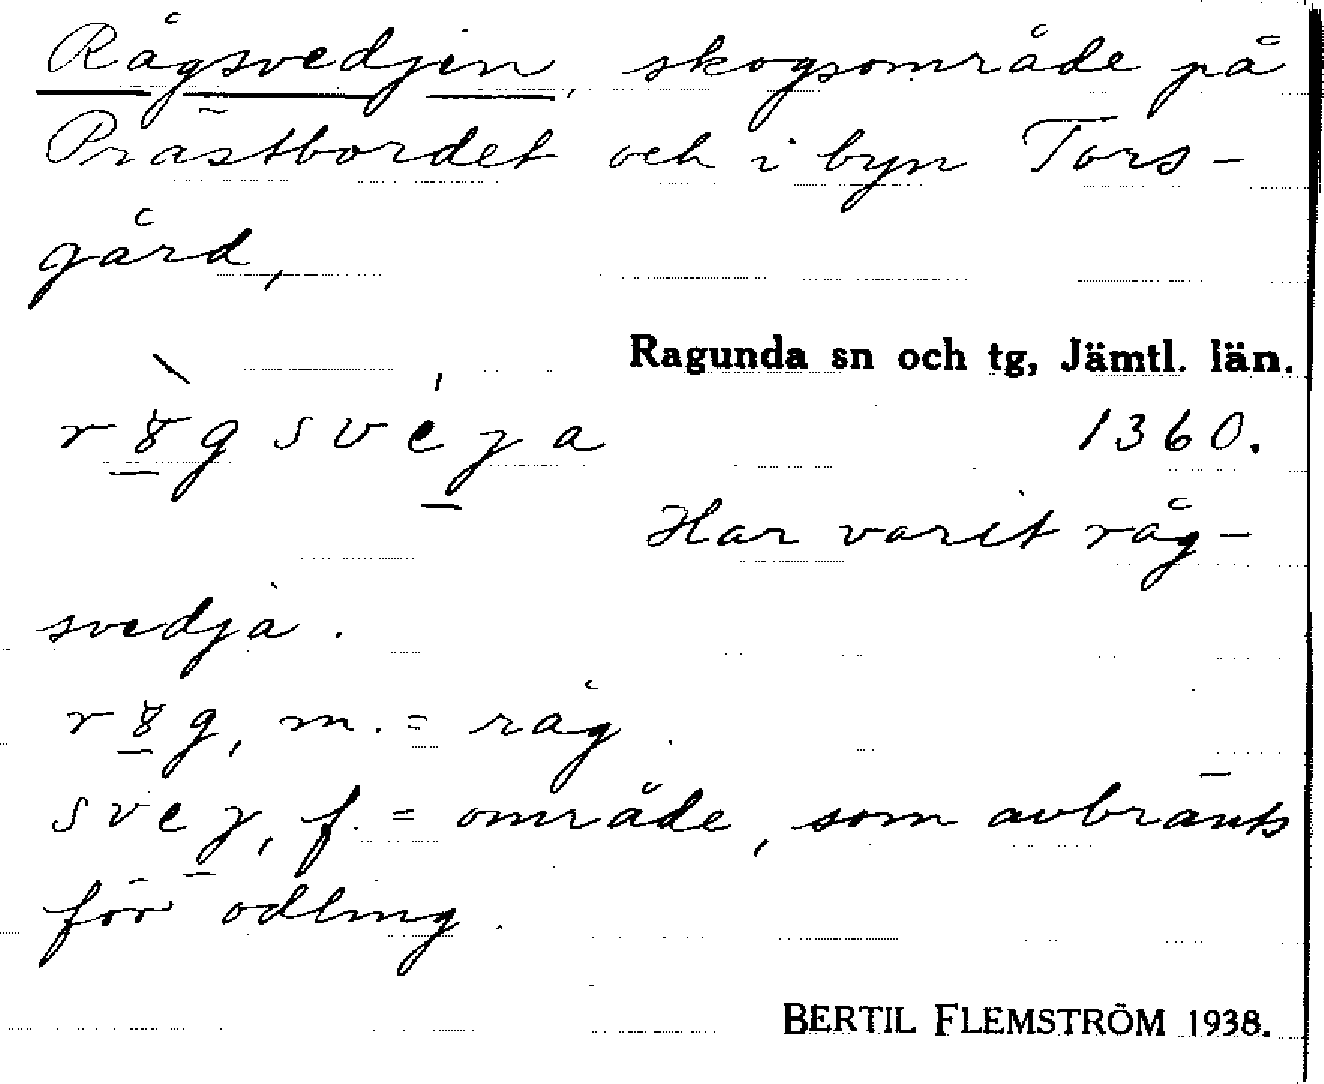 Rågsvedjen, skogsområde på
Prästbordet och i byn Tors-
gård,
Ragunda sn och tg, Jämtl. län.
1360.
Har varit råg-
svedja.
m. = råg
svej, f. = område, som avbränts
för odling.
BERTIL FLEMSTRÖM 1938.